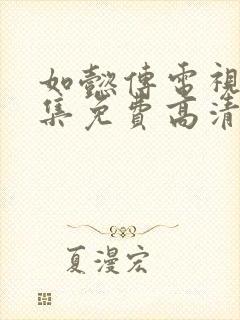 如懿傳電視
集免費高清
夏漫宏